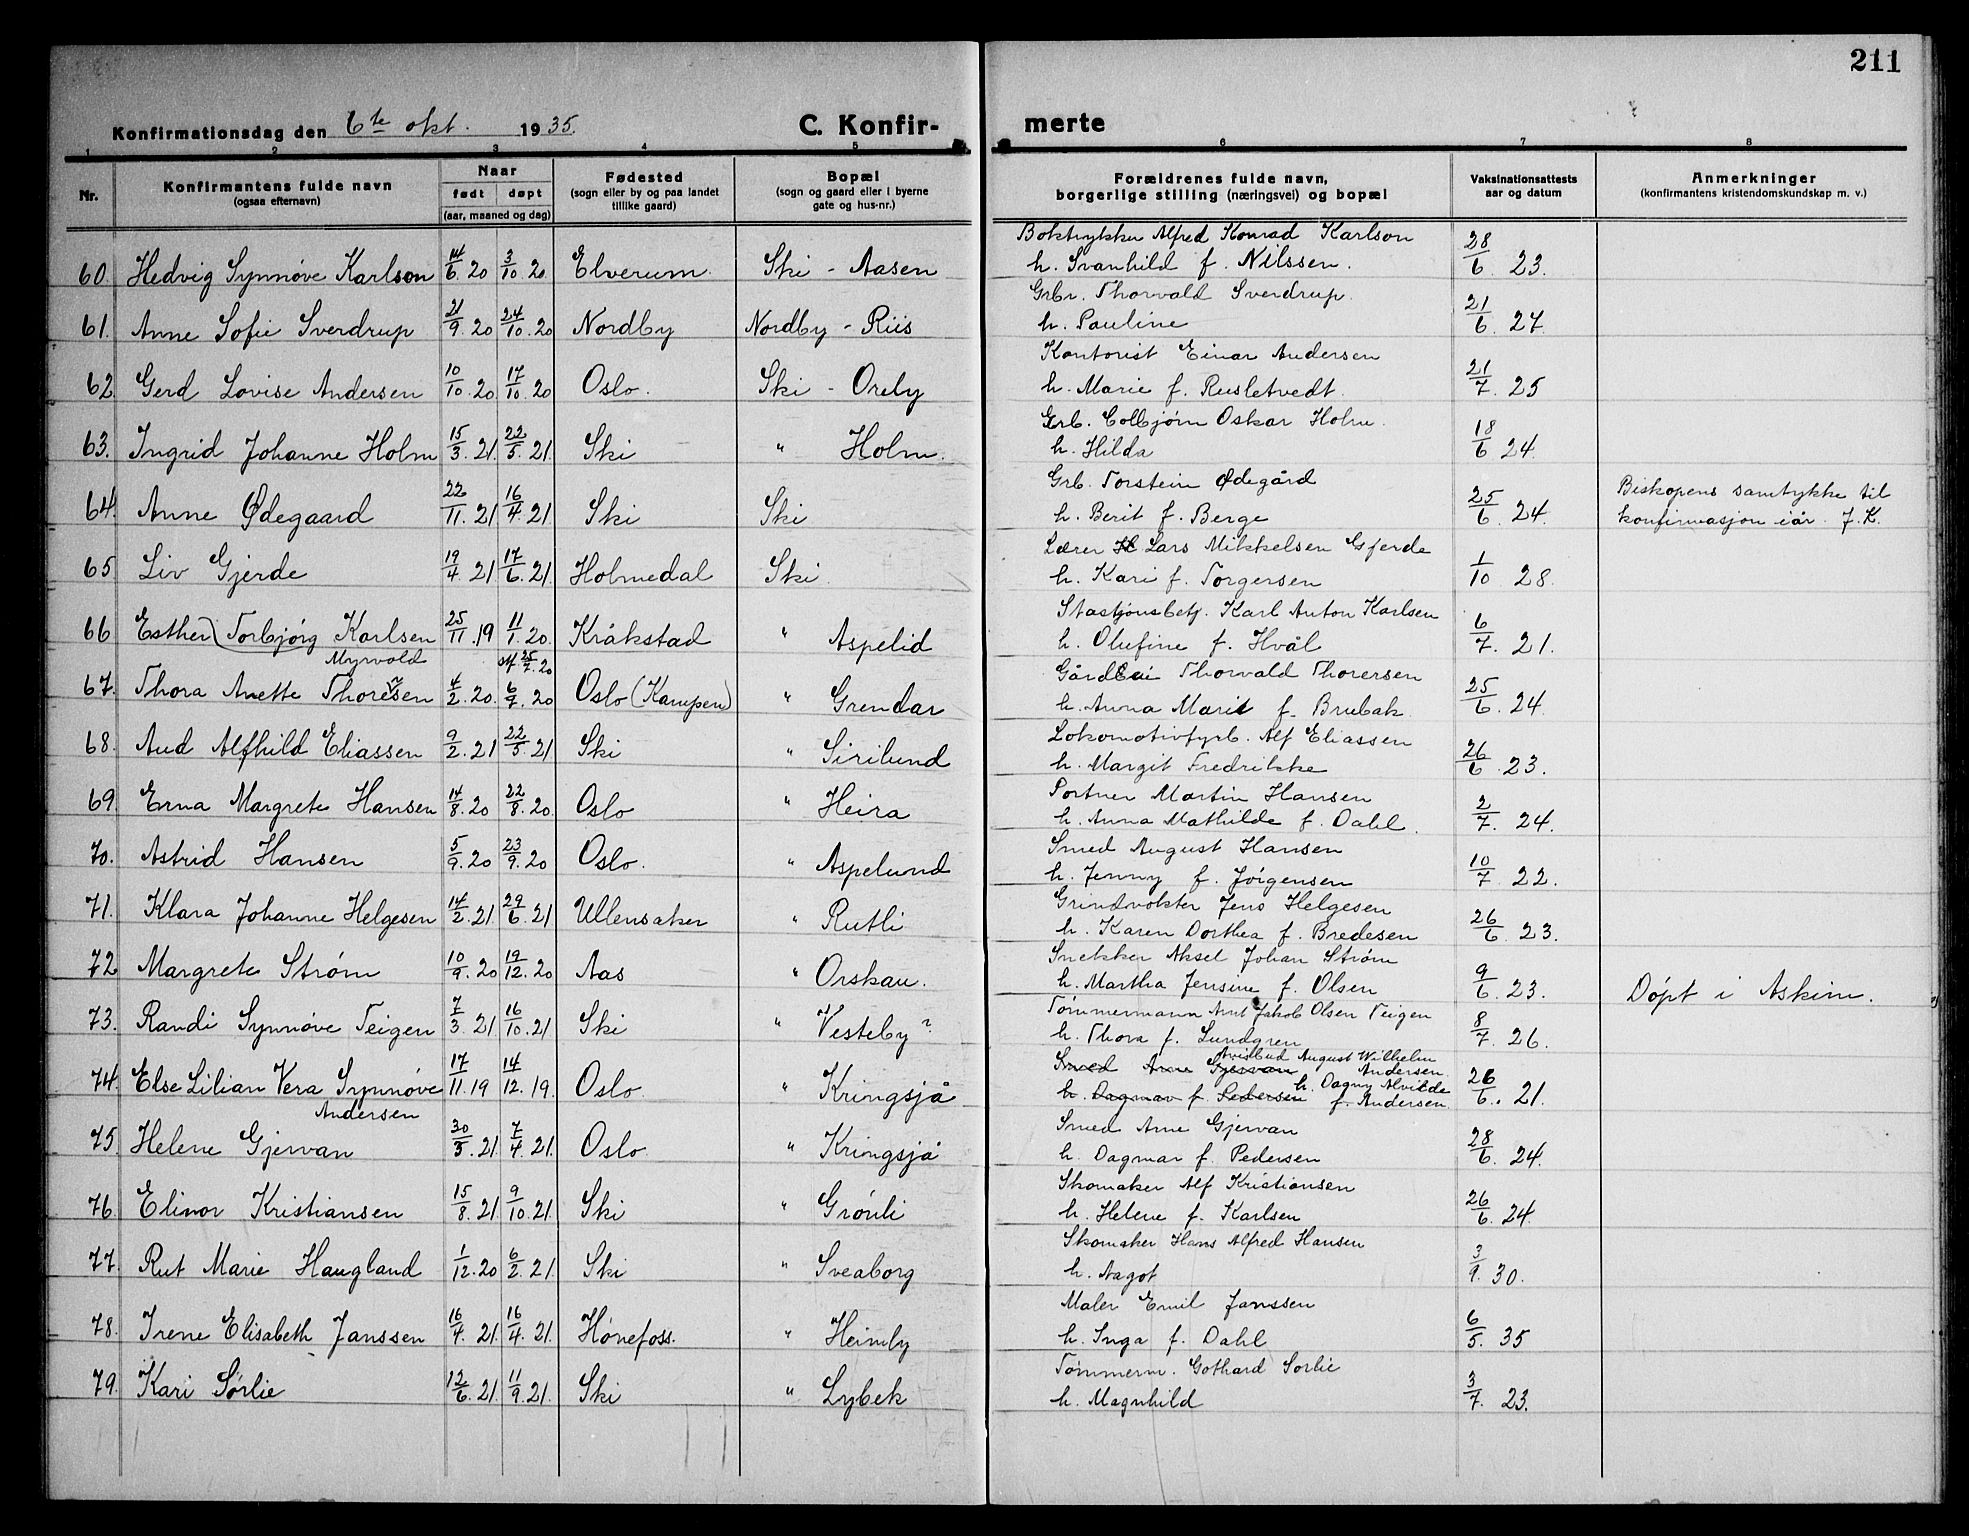 211
Konfirmationsdag den 6te okt. 1935. C. Konfir- merte
1 2 3 4 5 6 7 8
Nr. Konfirmantens fulde navn (ogsaa efternavn) Naar født døpt (aar, maaned og dag) Fødested (sogn eller by og paa landet tillike gaard) Bopæl (sogn og gaard eller i byerne gate og hus-nr.) Forældrenes fulde navn, borgerlige stilling (næringsvei) og bopæl Vaksinationsattests aar og datum Anmerkninger (konfirmantens kristendomskundskap m. v.)
Boktrykker Alfred Konrad Karlson
60. Hedvig Synnøve Karlson 14/6.20 3/10.20 Elverum Ski - Aasen h. Svanhild f. Nilssen. 28/6. 23.
Grbr. Thorvald Sverdrup.
61. Anne Sofie Sverdrup 21/9.20 24/10.20 Nordby Nordby - Riis h. Pauline 21/6. 27.
Kontorist Einar Andersen
62 Gerd Lovise Andersen 10/10.20 17/10.20 Oslo. Ski - Oreby h. Marie f. Rusletvedt. 21/7. 25
Grb. Colbjørn Oskar Holm.
63. Ingrid Johanne Holm 15/3.21. 22/5.21. Ski " Holm. h. Hilda 18/6 24.
Grb. Torstein Ødegård Biskopens samtykke til
64. Anne Ødegaard 22/11.21 16/4.21 Ski Ski h. Berit f. Berge 25/6. 24. konfirmasjon iår. J.K.
Lærer Lars Mikkelsen Gjerde
65 Liv Gjerde 19/4.21 17/6.21. Holmedal Ski. h. Kari f. Torgersen 1/10 28.
Stasjonsbetj. Karl Anton Karlsen
66 Esther (Torbjørg Karlsen 25/11.19 11/1.20. Kråkstad " Aspelid h. Olufine f. Hvål 6/7. 21.
Myrvold 25/7.20 Thorvald Thorersen
67. Thora Anette Thoresen 4/2.20. 6/9.20 Oslo (Kampen) " Grendar h. Anna Marit f. Brubak. 25/6. 24.
Lokomotivfyrb. Alf Eliassen
68. Aud Alfhild Eliassen 9/2.21 22/5.21 Ski " Sirilund h. Margit Fredrikke 26/6 .23.
Portner Martin Hansen
69. Erna Margrete Hansen 14/8.20 22/8.20 Oslo " Heira h. Anna Mathilde f. Dahl. 2/7. 24.
Smed August Hansen
70. Astrid Hansen 5/9.20 23/9.20 Oslo. " Aspelund h. Jenny f. Jørgensen 10/7. 22.
Grindvokter Jens Helgesen
71. Klara Johanne Helgesen 14/2.21. 29/6.21 Ullensaker " Rutli h. Karen Dorthea f. Bredesen 26/6. 23.
Snekker Aksel Johan Strøm
72 Margrete Strøm 10/9.20 19/12.20 Aas " Orskau. h. Martha Jensine f. Olsen 9/6. 23. Døpt i Askim.
Tømmermann Arnt Jakob Olsen Teigen
73. Randi Synnøve Teigen 7/3.21 16/10.21 Ski " Vesteby? h. Thora f. Lundgren 8/7. 26.
Avisbud August Wilhelm
Smed Arne Gjervan Andersen
74. Else Lilian Vera Synnøve 17/11.19 14/12.19. Oslo. " Kringsjå h. Dagmar f. Pedersen h. Dagny Alvilde 26/6. 21.
Andersen f. Andersen.
Smed Arne Gjervan
75. Helene Gjervan 30/3.21. 7/4.21. Oslo " Kringsjå h. Dagmar f. Pedersen 28/6. 24.
Skomaker Alf Kristiansen
76. Elinor Kristiansen 15/8.21. 9/10.21. Ski " Grønli h. Helene f. Karlsen 26/6. 24.
Skomaker Hans Alfred Hansen
77. Rut Marie Haugland 1/12.20 6/2.21. Ski " Sveaborg h. Aagot 3/9. 30.
Maler Emil Janssen
78. Irene Elisabeth Janssen 16/4.21. 16/4.21. Hønefoss. " Heimly h. Inga f. Dahl 6/5. 35
Tømmerm. Gothard Sørlie
79. Kari Sørlie 12/6.21. 11/9.21. Ski " Lybek h. Magnhild 3/7. 23.